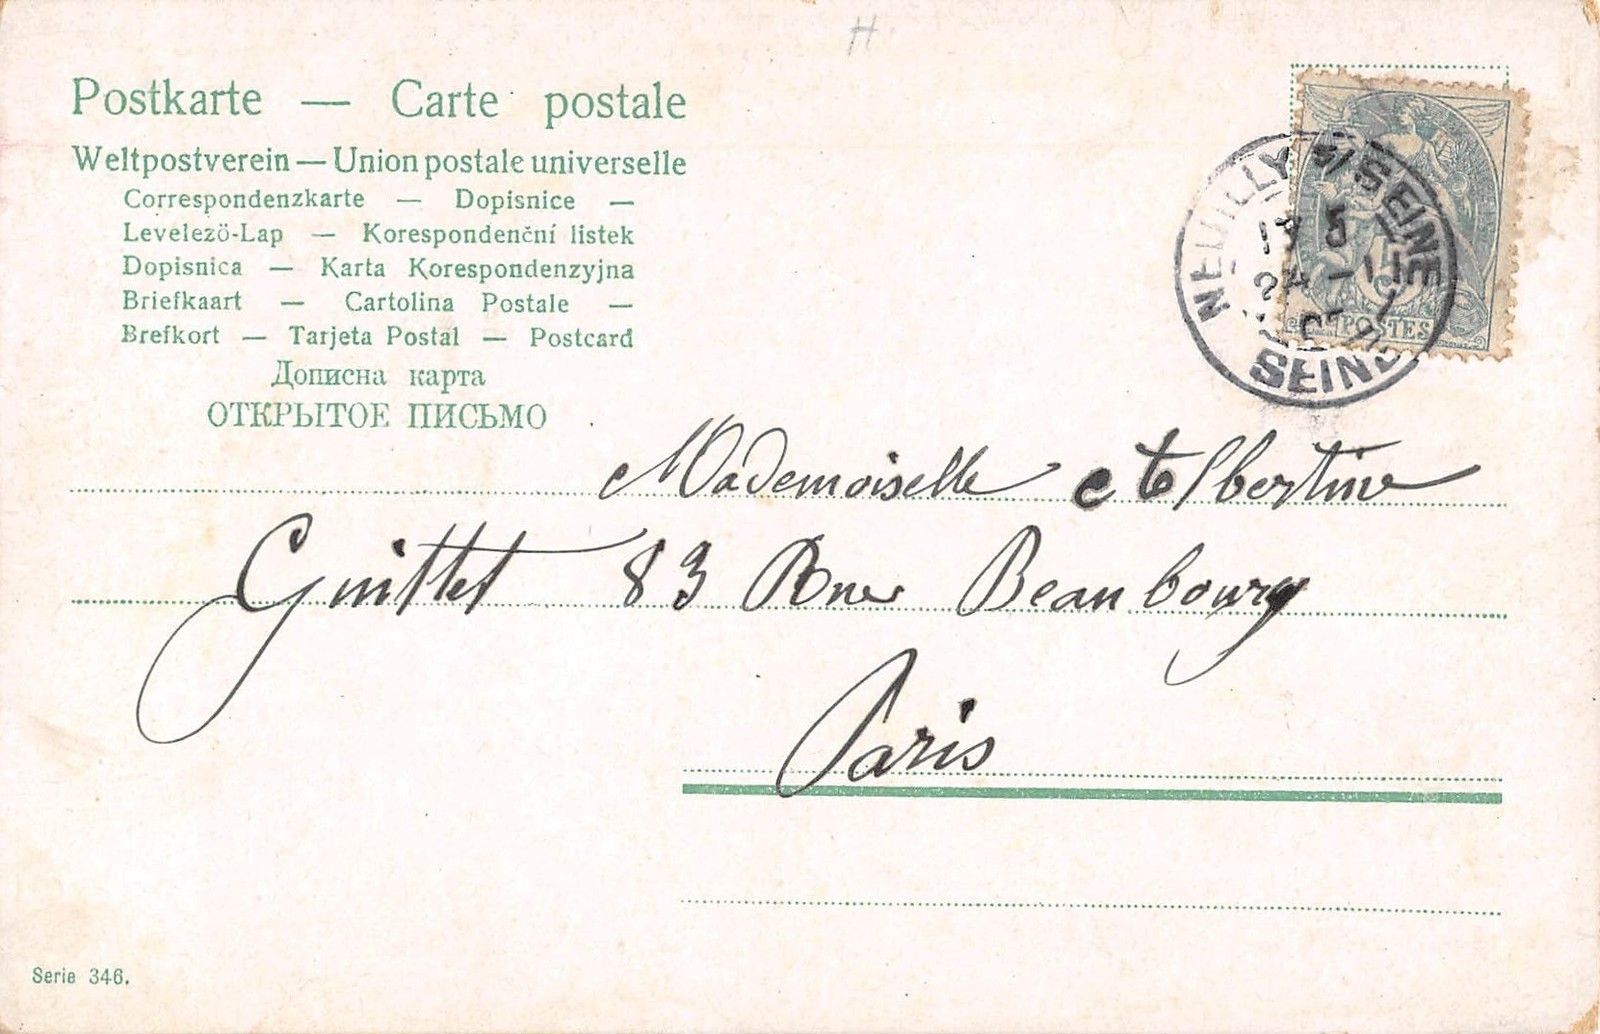 H
Postkarte — Carte postale
Weltpostverein — Union postale universelle
Correspondenzkarte — Dopisnice —
Levelezö-Lap — Korespondenční listek
Dopisnica — Karta Korespondenzyjna
Briefkaart — Cartolina Postale —
Brefkort — Tarjeta Postal — Postcard
Дописна карта
ОТКРЫТОЕ ПИСЬМО
NEUILLY S/ SEINE
SEINE
5
POSTES
Mademoiselle Albertine
Guittet 83 Rue Beaubourg
Paris
Serie 346.